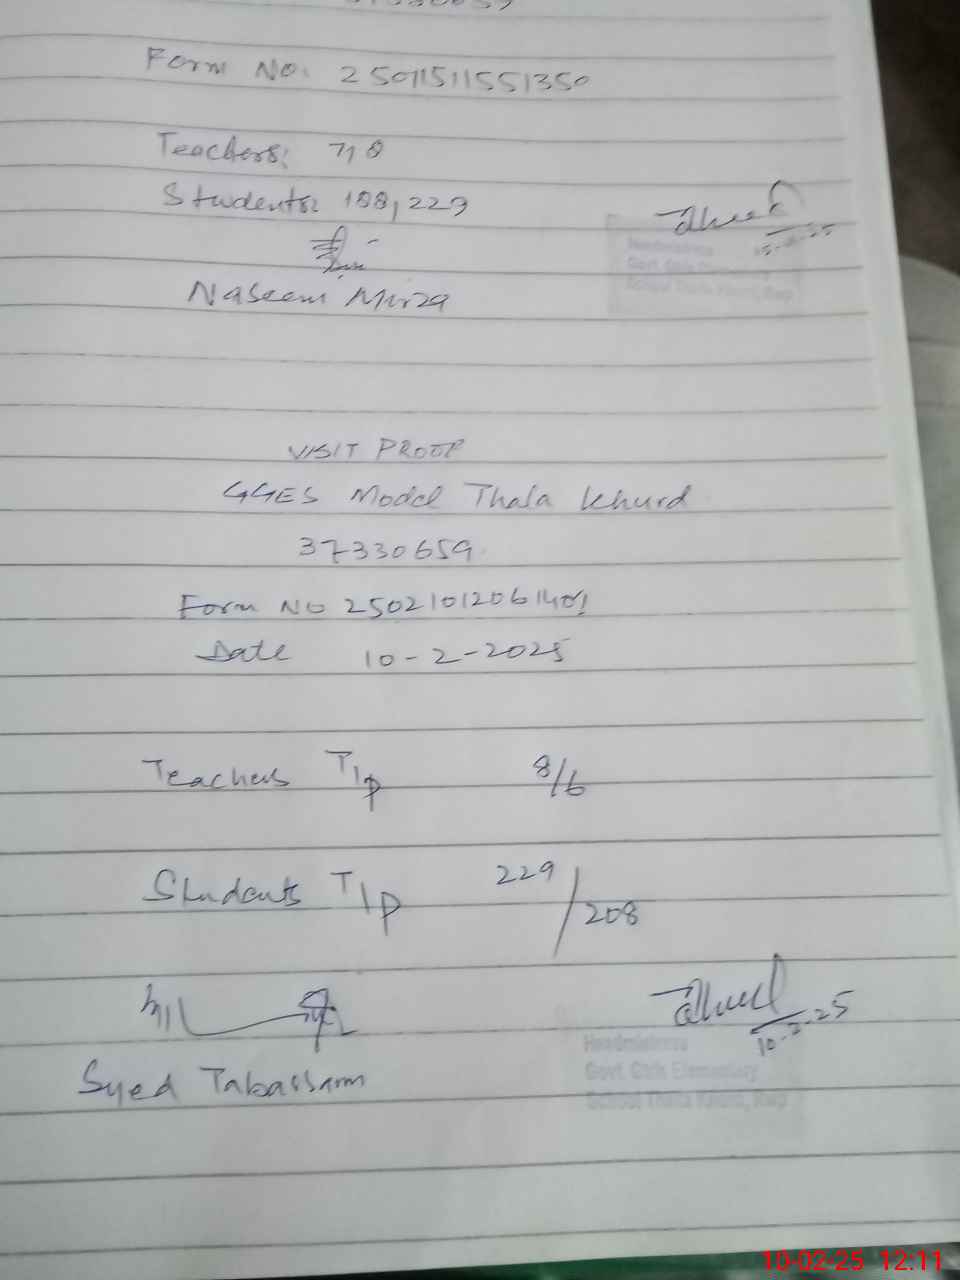 Form No. 25011511551350
Teachers: 7, 8
Students: 188, 229
15-1-25
Headmistress
Govt. Girls Elementary
Naseem Mirza
VISIT PROOF
GGES Model Thala Khurd
37330659
Form No 25021012061401
Date 10-2-2025
Teachers T/p 8/6
Students T/p 229/208
10-2-25
Headmistress
Govt. Girls Elementary
School Thalla Khurd, Rwp
Syed Tabassam
10-02-25 12:11